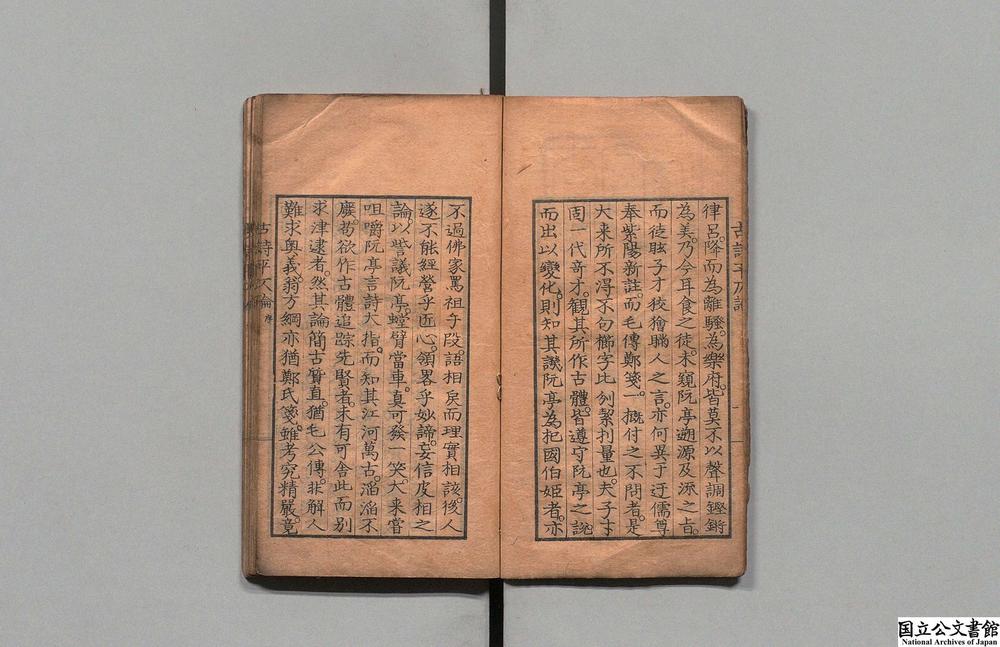 律呂。降而為離騷。為樂府。皆莫不以聲調鏗鏘
為美。乃今耳食之徒。未窺阮亭遡源及派之旨。
而徒眩子才狡獪賺人之言。亦何異于迂儒尊
奉紫陽新註。而毛傳鄭箋。一概付之不問者。是
大来所不得不句櫛字比刌絜刌量也。夫子才
固一代奇才。觀其所作古體。皆遵守阮亭之說。
而出以變化。則知其譏阮亭為杞國伯姬者。亦
不過佛家罵祖手段。語相戾而理實相該。後人
遂不能經營乎匠心。領畧乎妙諦。妄信皮相之
論。以訾議阮亭。螳臂當車。真可發一笑。大来嘗
咀嚼阮亭言詩大指。而知其江河萬古。滔滔不
廢。苟欲作古體追踪先賢者。未有可舍此而別
求津逮者。然其論簡古質直。猶毛公傳。非解人
難求奧義。翁方綱亦猶鄭氏箋。雖考究精嚴。竟
古詩平仄論 序
国立公文書館
National Archives of Japan